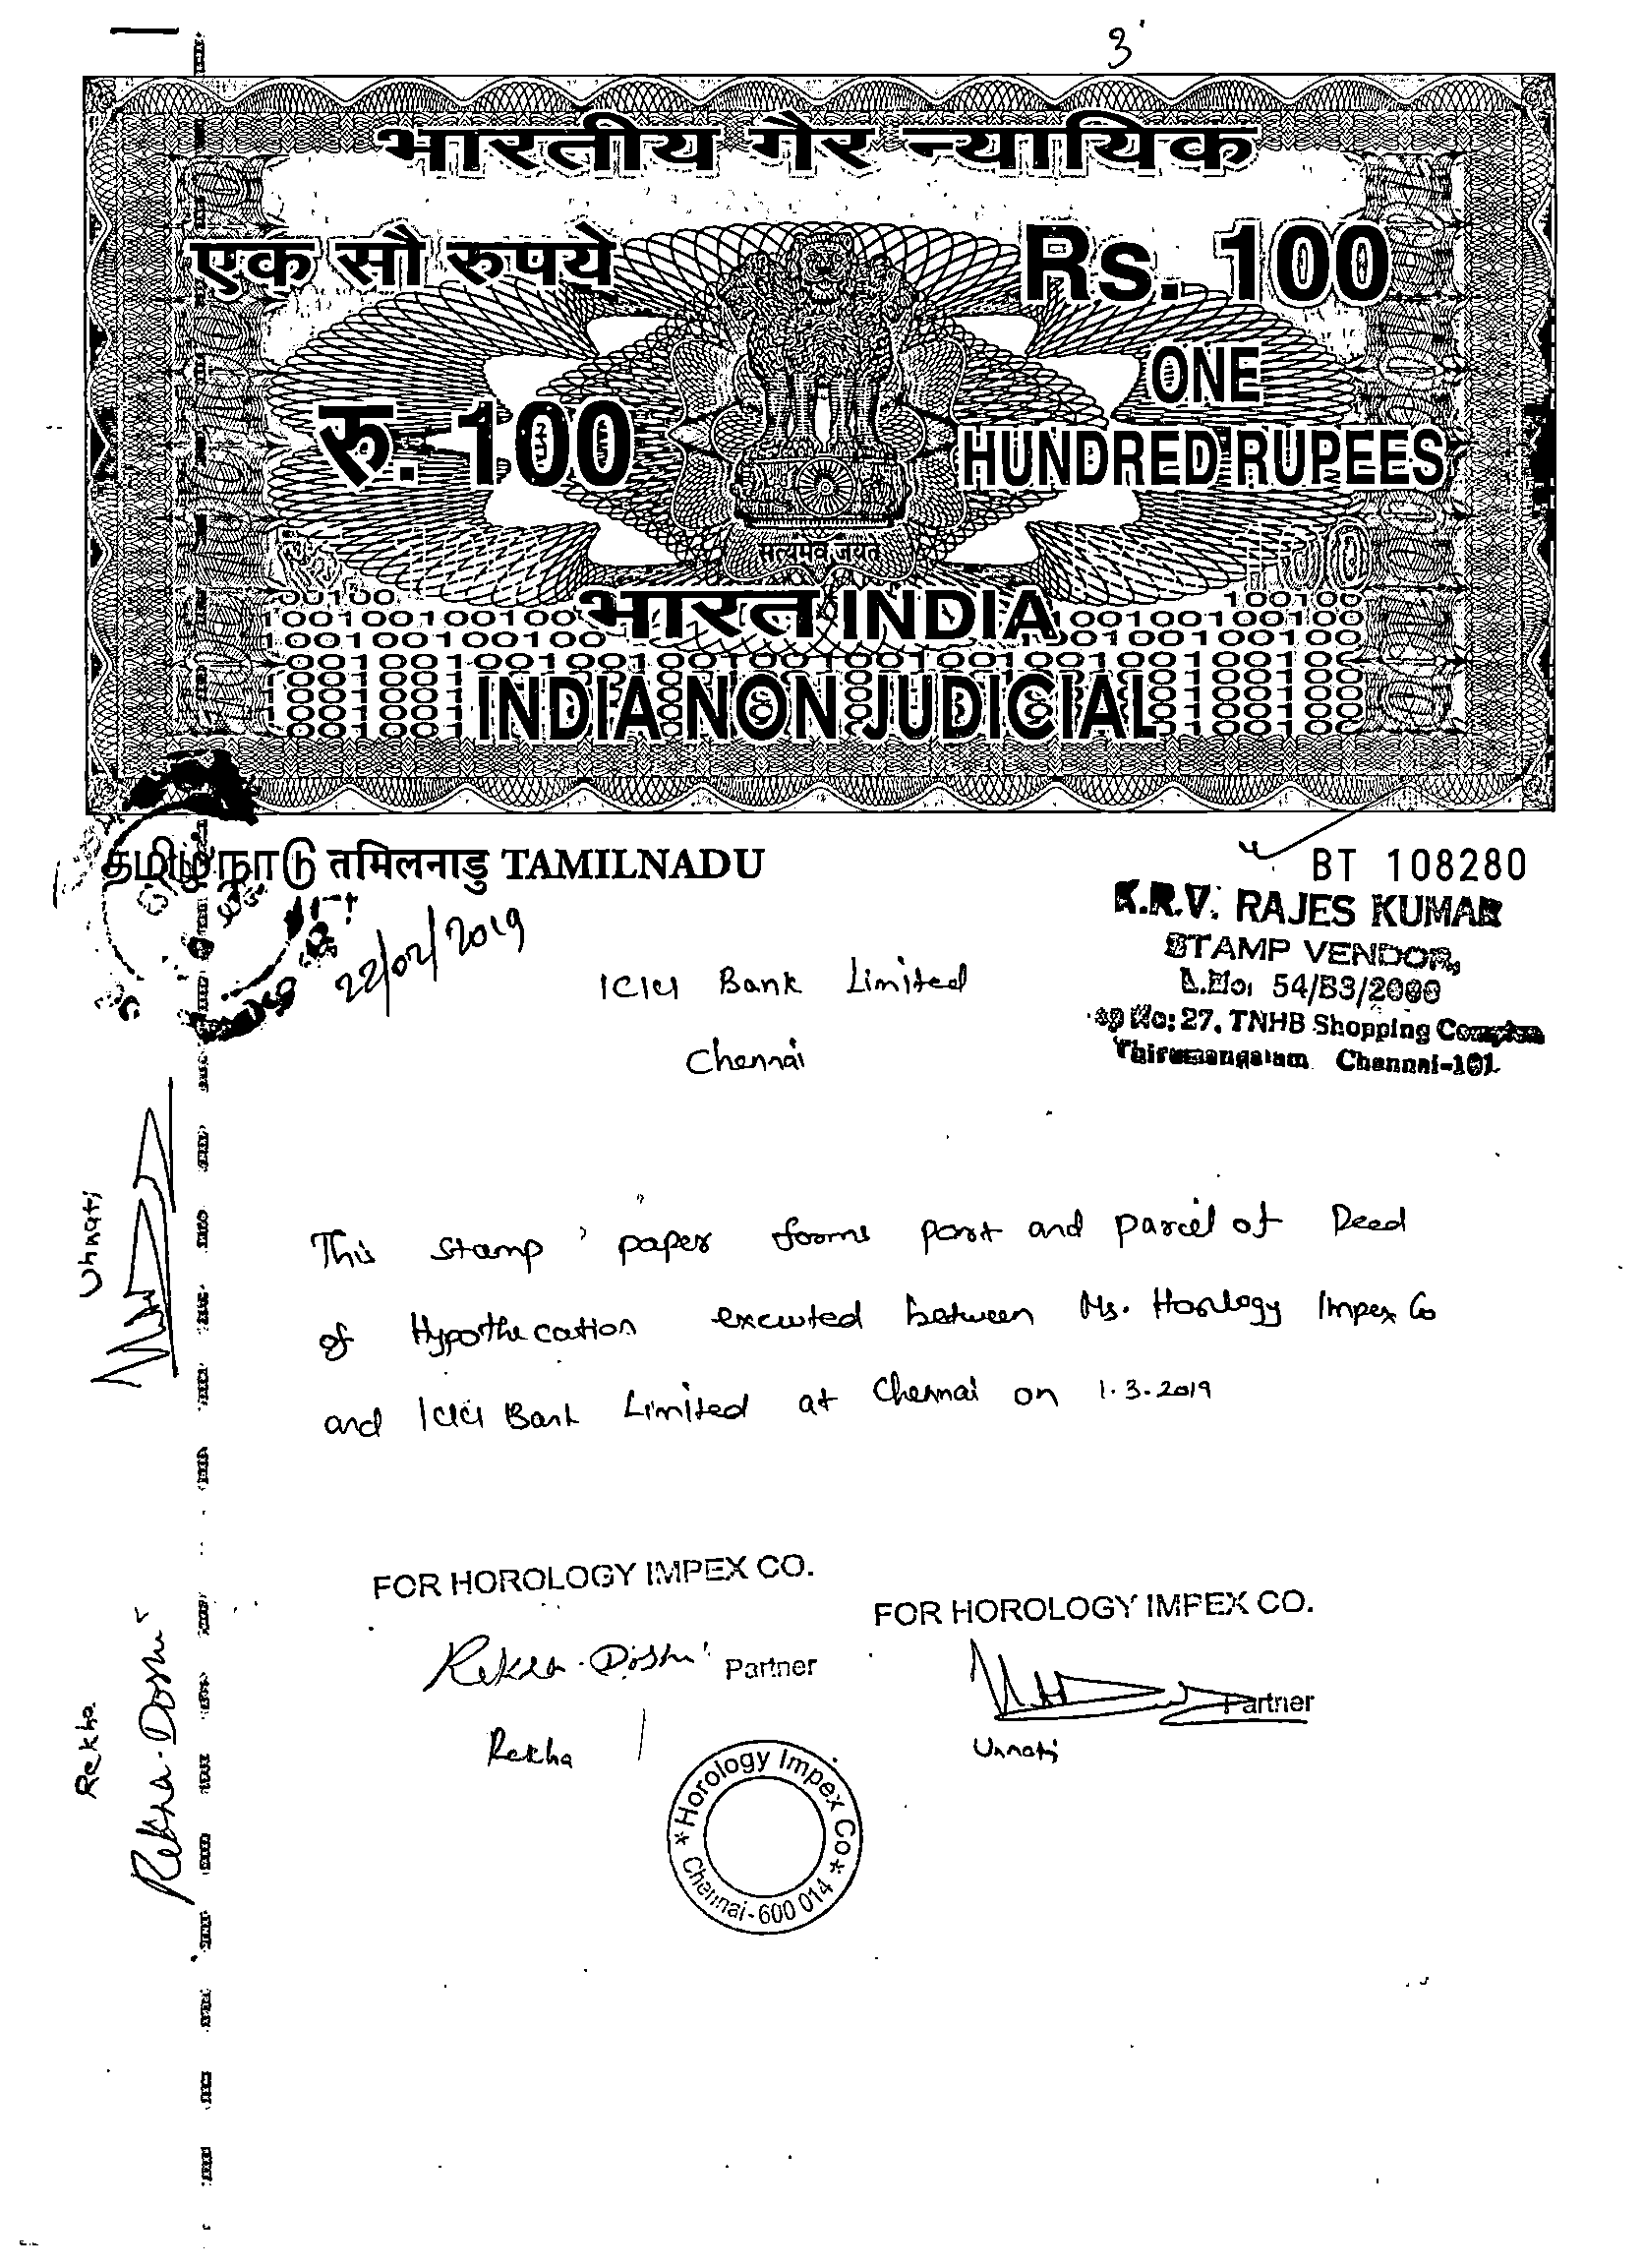 3
भारतीय गैर न्यायिक
एक सौ रुपये
Rs. 100
रु. 100
ONE
HUNDRED RUPEES
सत्यमेव जयते
भारत INDIA
INDIA NON JUDICIAL
தமிழ்நாடு तमिलनाडु TAMILNADU
BT 108280
K.R.V. RAJES KUMAR
STAMP VENDOR,
L.No: 54/B3/2000
No: 27, TNHB Shopping Complex
Thirumangalam Chennai-101
22/02/2019
ICICI Bank Limited
Chennai
This stamp paper forms part and parcel of Deed
of Hypothecation executed between Ms. Horology Impex Co
and ICICI Bank Limited at Chennai on 1.3.2019
Unnati
Rekha
Rekha.Doshi
FOR HOROLOGY IMPEX CO.
Rekha.Doshi Partner
Rekha
FOR HOROLOGY IMPEX CO.
Partner
Unnati
*Horology Impex Co*
Chennai-600 014